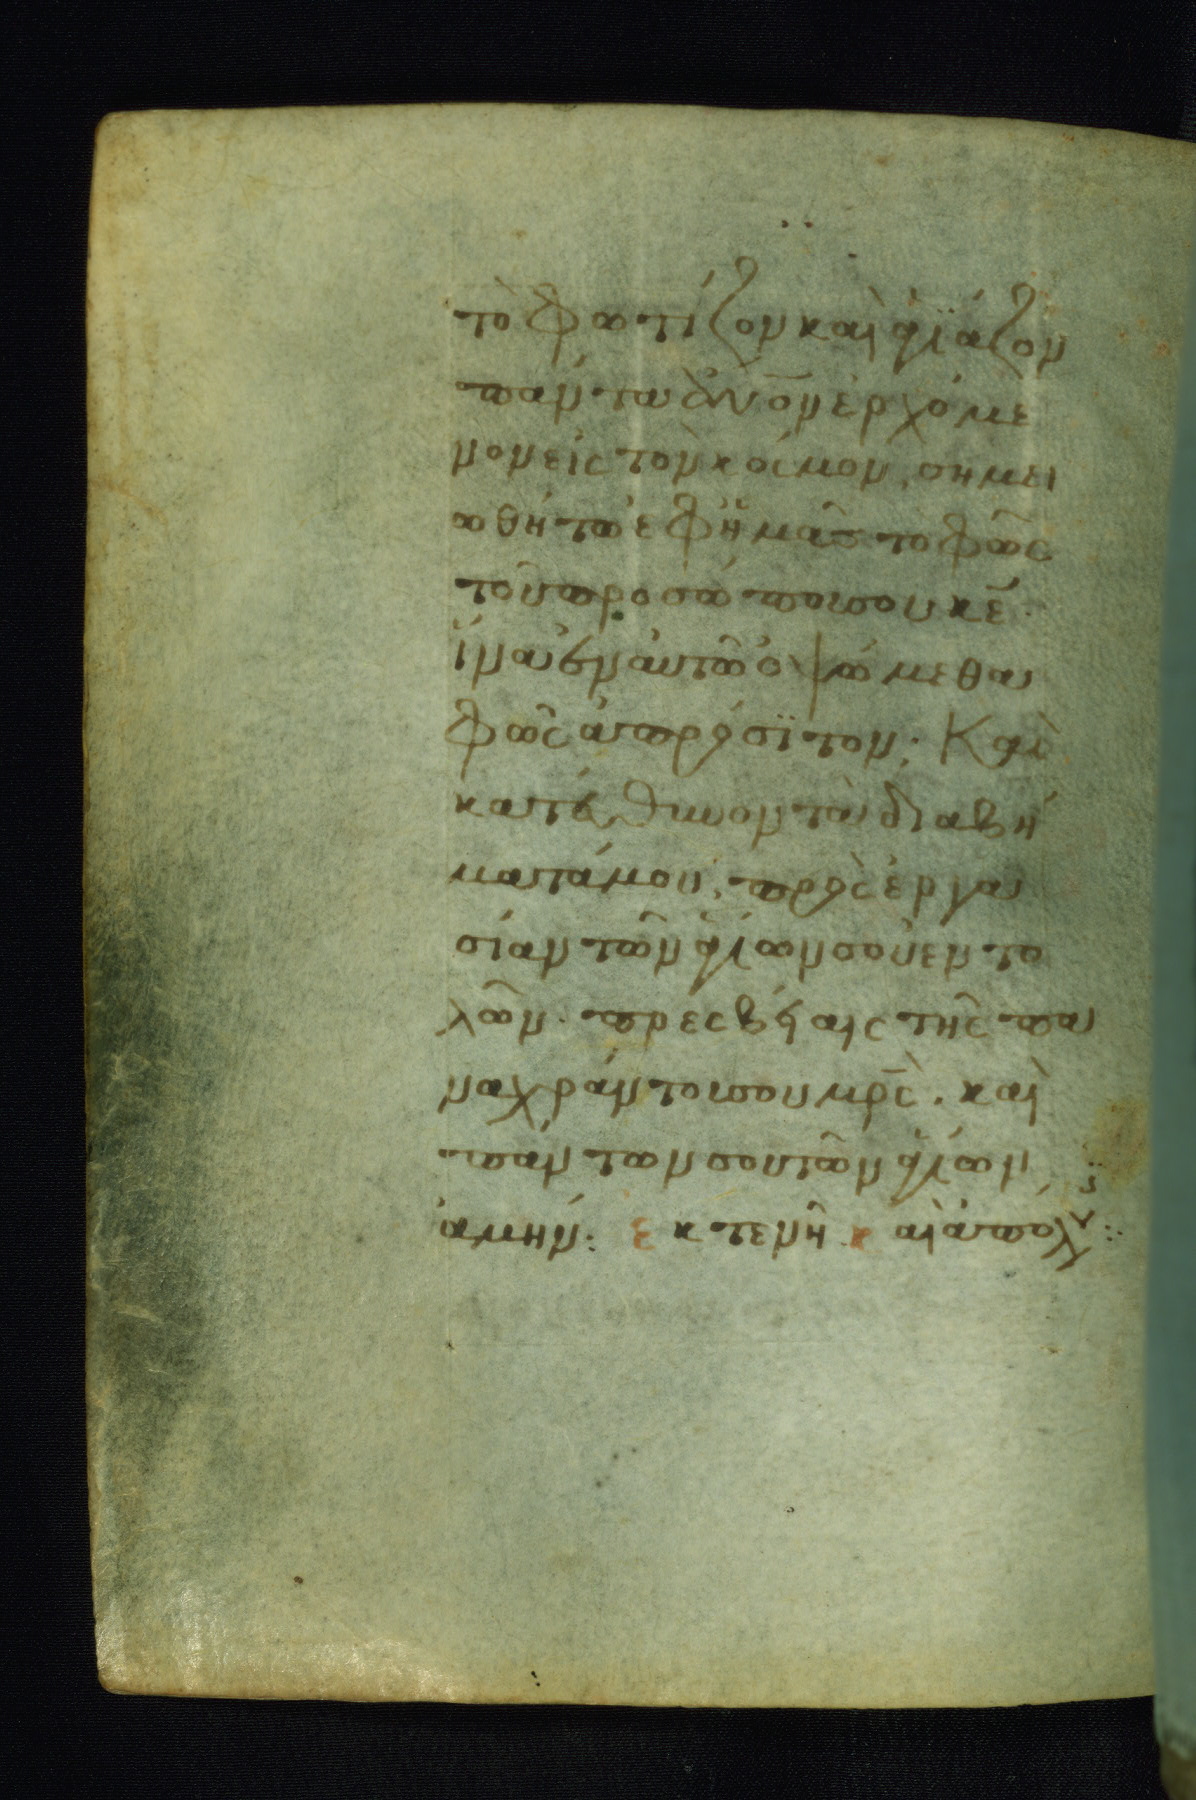 τὸ φωτίζον καὶ ἁγϊάζον
πάντα ἄν͞ον ἐρχόμε
νον εἰς τὸν κόσμον, σημει
ωθήτω ἐφ ἡμᾶς τὸ φῶς
τοῦ προσώπου σου κ͞ε.
ἵνα ἐν αὐτῶ ὀψώμεθα
φῶς ἀπρόσϊτον· Καὶ
κατεύθυνον τὰ διαβή
ματά μου, πρὸς ἐργα
σίαν τῶν ἁγίων σου ἐντο
λῶν. πρεσβείαις τῆς πα
ναχράντου σου μρ͞ς. καὶ
πάντων σου τῶν ἁγίων
ἀμήν: